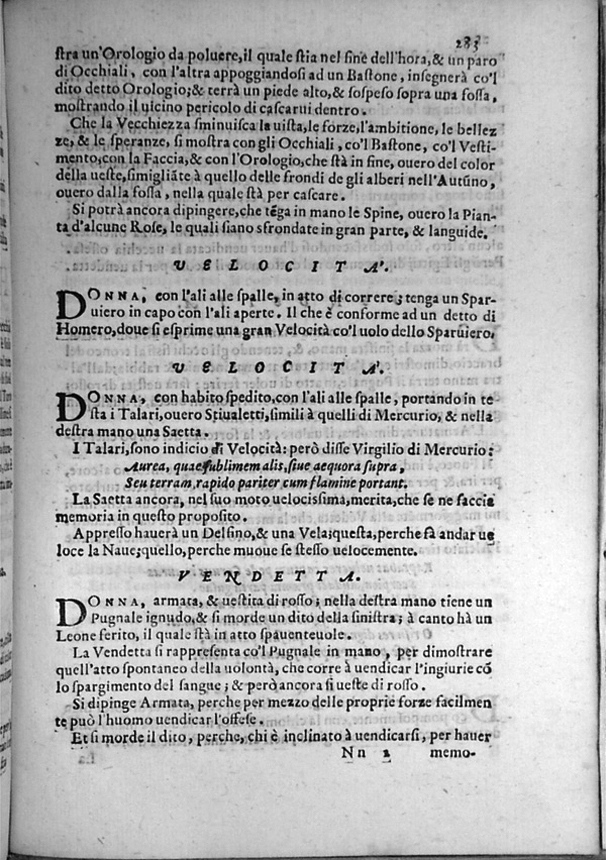 283
stra un'Orologio da poluere, il quale stia nel fine dell'hora, & un paro
di Occhiali, con l'altra appoggiandosi ad un Bastone, insegnerà co'l
dito detto Orologio; & terrà un piede alto, & sospeso sopra una fossa,
mostrando il uicino pericolo di cascarui dentro.
Che la Vecchiezza sminuisca la uista, le forze, l'ambitione, le bellez
ze, & le speranze, si mostra con gli Occhiali, co'l Bastone, co'l Vesti-
mento, con la Faccia, & con l'Orologio, che stà in fine, ouero del color
della ueste, simigliāte à quello delle frondi de gli alberi nell'Autūno,
ouero dalla fossa, nella quale stà per cascare.
Si potrà ancora dipingere, che tēga in mano le Spine, ouero la Pian-
ta d'alcune Rose, le quali siano sfrondate in gran parte, & languide.
VELOCITA'.
DONNA, con l'ali alle spalle, in atto di correre; tenga un Spar-
uiero in capo con l'ali aperte. Il che è conforme ad un detto di
Homero, doue si esprime una gran Velocità co'l uolo dello Sparuiero.
VELOCITA'.
DONNA, con habito spedito, con l'ali alle spalle, portando in te
sta i Talari, ouero Stiualetti, simili à quelli di Mercurio, & nella
destra mano una Saetta.
I Talari, sono indicio di Velocità: però disse Virgilio di Mercurio:
Aurea, quae sublimem alis, siue aequora supra,
Seu terram, rapido pariter cum flamine portant.
La Saetta ancora, nel suo moto uelocissima, merita, che se ne faccia
memoria in questo proposito.
Appresso hauerà un Delfino, & una Vela; questa, perche fà andar ue
loce la Naue; quello, perche muoue se stesso uelocemente.
VENDETTA.
DONNA, armata, & uestita di rosso; nella destra mano tiene un
Pugnale ignudo, & si morde un dito della sinistra; à canto hà un
Leone ferito, il quale stà in atto spauenteuole.
La Vendetta si rappresenta co'l Pugnale in mano, per dimostrare
quell'atto spontaneo della uolontà, che corre à uendicar l'ingiurie cō
lo spargimento del sangue; & però ancora si ueste di rosso.
Si dipinge Armata, perche per mezzo delle proprie forze facilmen
te può l'huomo uendicar l'offese.
Et si morde il dito, perche, chi è inclinato à uendicarsi, per hauer
Nn 2 memo-